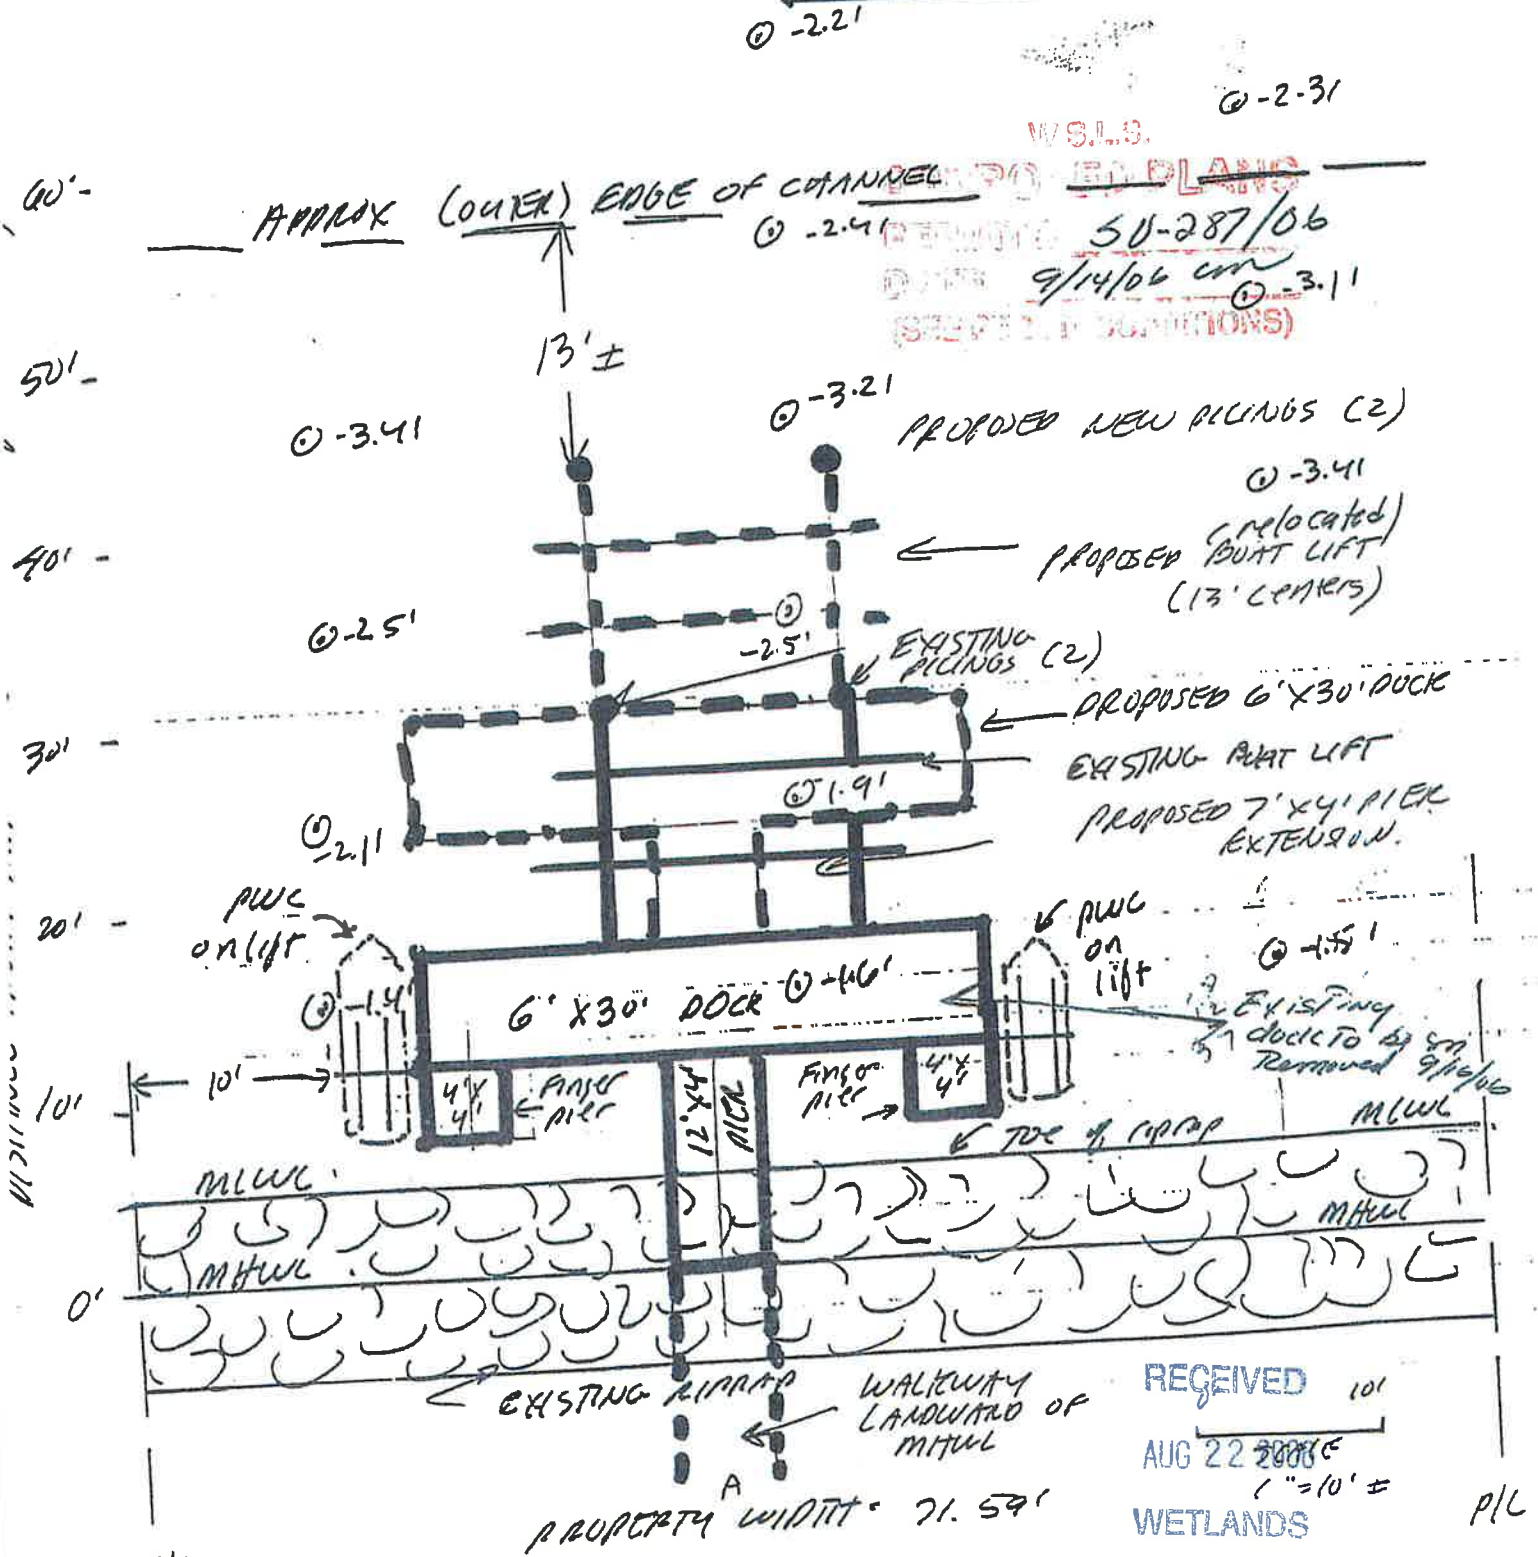 -2.2'
-2.3'
W.S.L.S.
PLANS
60'-
APPROX (OUTER) EDGE OF CHANNEL
-2.4'
SU-287/06
9/14/06
-3.1'
13' ±
50'-
-3.2'
-3.4'
PROPOSED NEW PILINGS (2)
-3.4'
(relocated)
PROPOSED BOAT LIFT
(13' centers)
40'-
-2.5'
-2.5'
EXISTING
PILINGS (2)
PROPOSED 6'X30' DOCK
30'-
EXISTING BOAT LIFT
1.9'
PROPOSED 7'X4' PIER
EXTENSION.
-2.1'
PWC
on lift
20'-
PWC
on
lift
-1.4'
6' X 30' DOCK
-1.6'
Existing
dock To be
Removed 9/16/06
10'
4'X
4'
Finger
pier
12'X4'
PIER
Finger
pier
4'X
4'
10'
Toe of riprap
MLWL
MLWL
MHWL
MHWL
0'
EXISTING RIPRAP
WALKWAY
LANDWARD OF
MHWL
RECEIVED
AUG 22 2006
WETLANDS
10'
SCALE
1"=10' ±
A
PROPERTY WIDTH = 71.59'
P/L